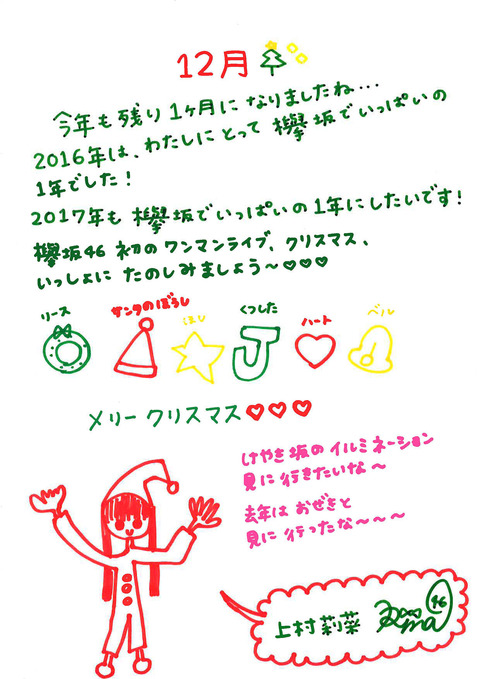 12月
今年も残り1ヶ月になりましたね…
2016年は、わたしにとって欅坂でいっぱいの
1年でした！
2017年も欅坂でいっぱいの1年にしたいです！
欅坂46初のワンマンライブ、クリスマス、
いっしょにたのしみましょう〜♡♡♡
リース サンタのぼうし ほし くつした ハート ベル
メリークリスマス♡♡♡
けやき坂のイルミネーション
見に行きたいな〜
去年はおぜきと
見に行ったな〜〜〜
上村莉菜
46